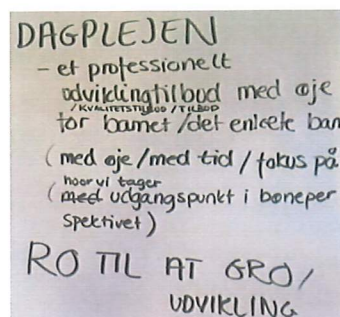 DAGPLEJEN
- et professionelt
udviklingtilbud med øje
/KVALITETSTILBUD/TILBUD
for barnet/det enkele bar
(med øje/med tid/fokus på
hvor vi tager
(med udgangspunkt i børneper
spektivet)
RO TIL AT GRO/
UDVIKLING